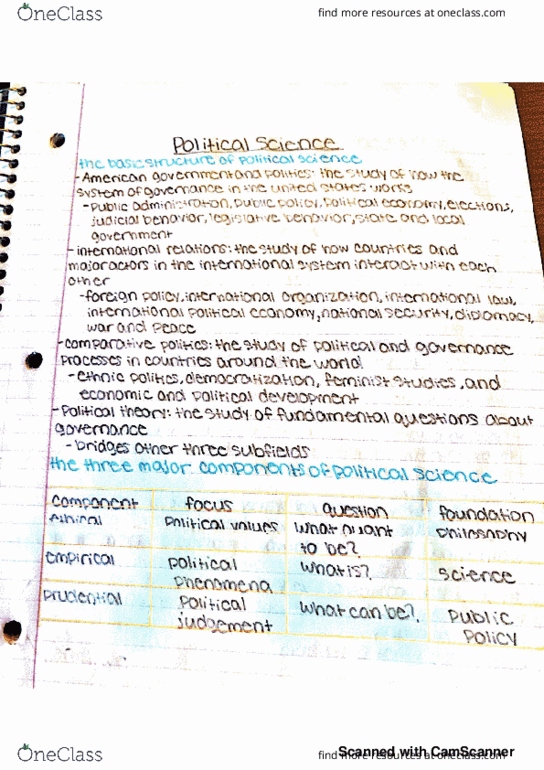 OneClass
find more resources at oneclass.com
Political Science
the basic structure of political science
-American government and politics: the study of how the
system of governance in the united states works
-public administration, public policy, political economy, elections,
judicial behavior, legislative behavior, state and local
government
-international relations: the study of how countries and
major actors in the international system interact with each
other
-foreign policy, international organization, international law,
international political economy, national security, diplomacy,
war and peace
-comparative politics: the study of political and governance
processes in countries around the world
-ethnic politics, democratization, feminist studies, and
economic and political development
-political theory: the study of fundamental questions about
governance
-bridges other three subfields
the three major components of political science
component focus question foundation
political values what ought philosophy
to be?
empirical political what is? science
phenomena
prudential political what can be? public
judgement policy
OneClass
find more resources at oneclass.com
Scanned with CamScanner